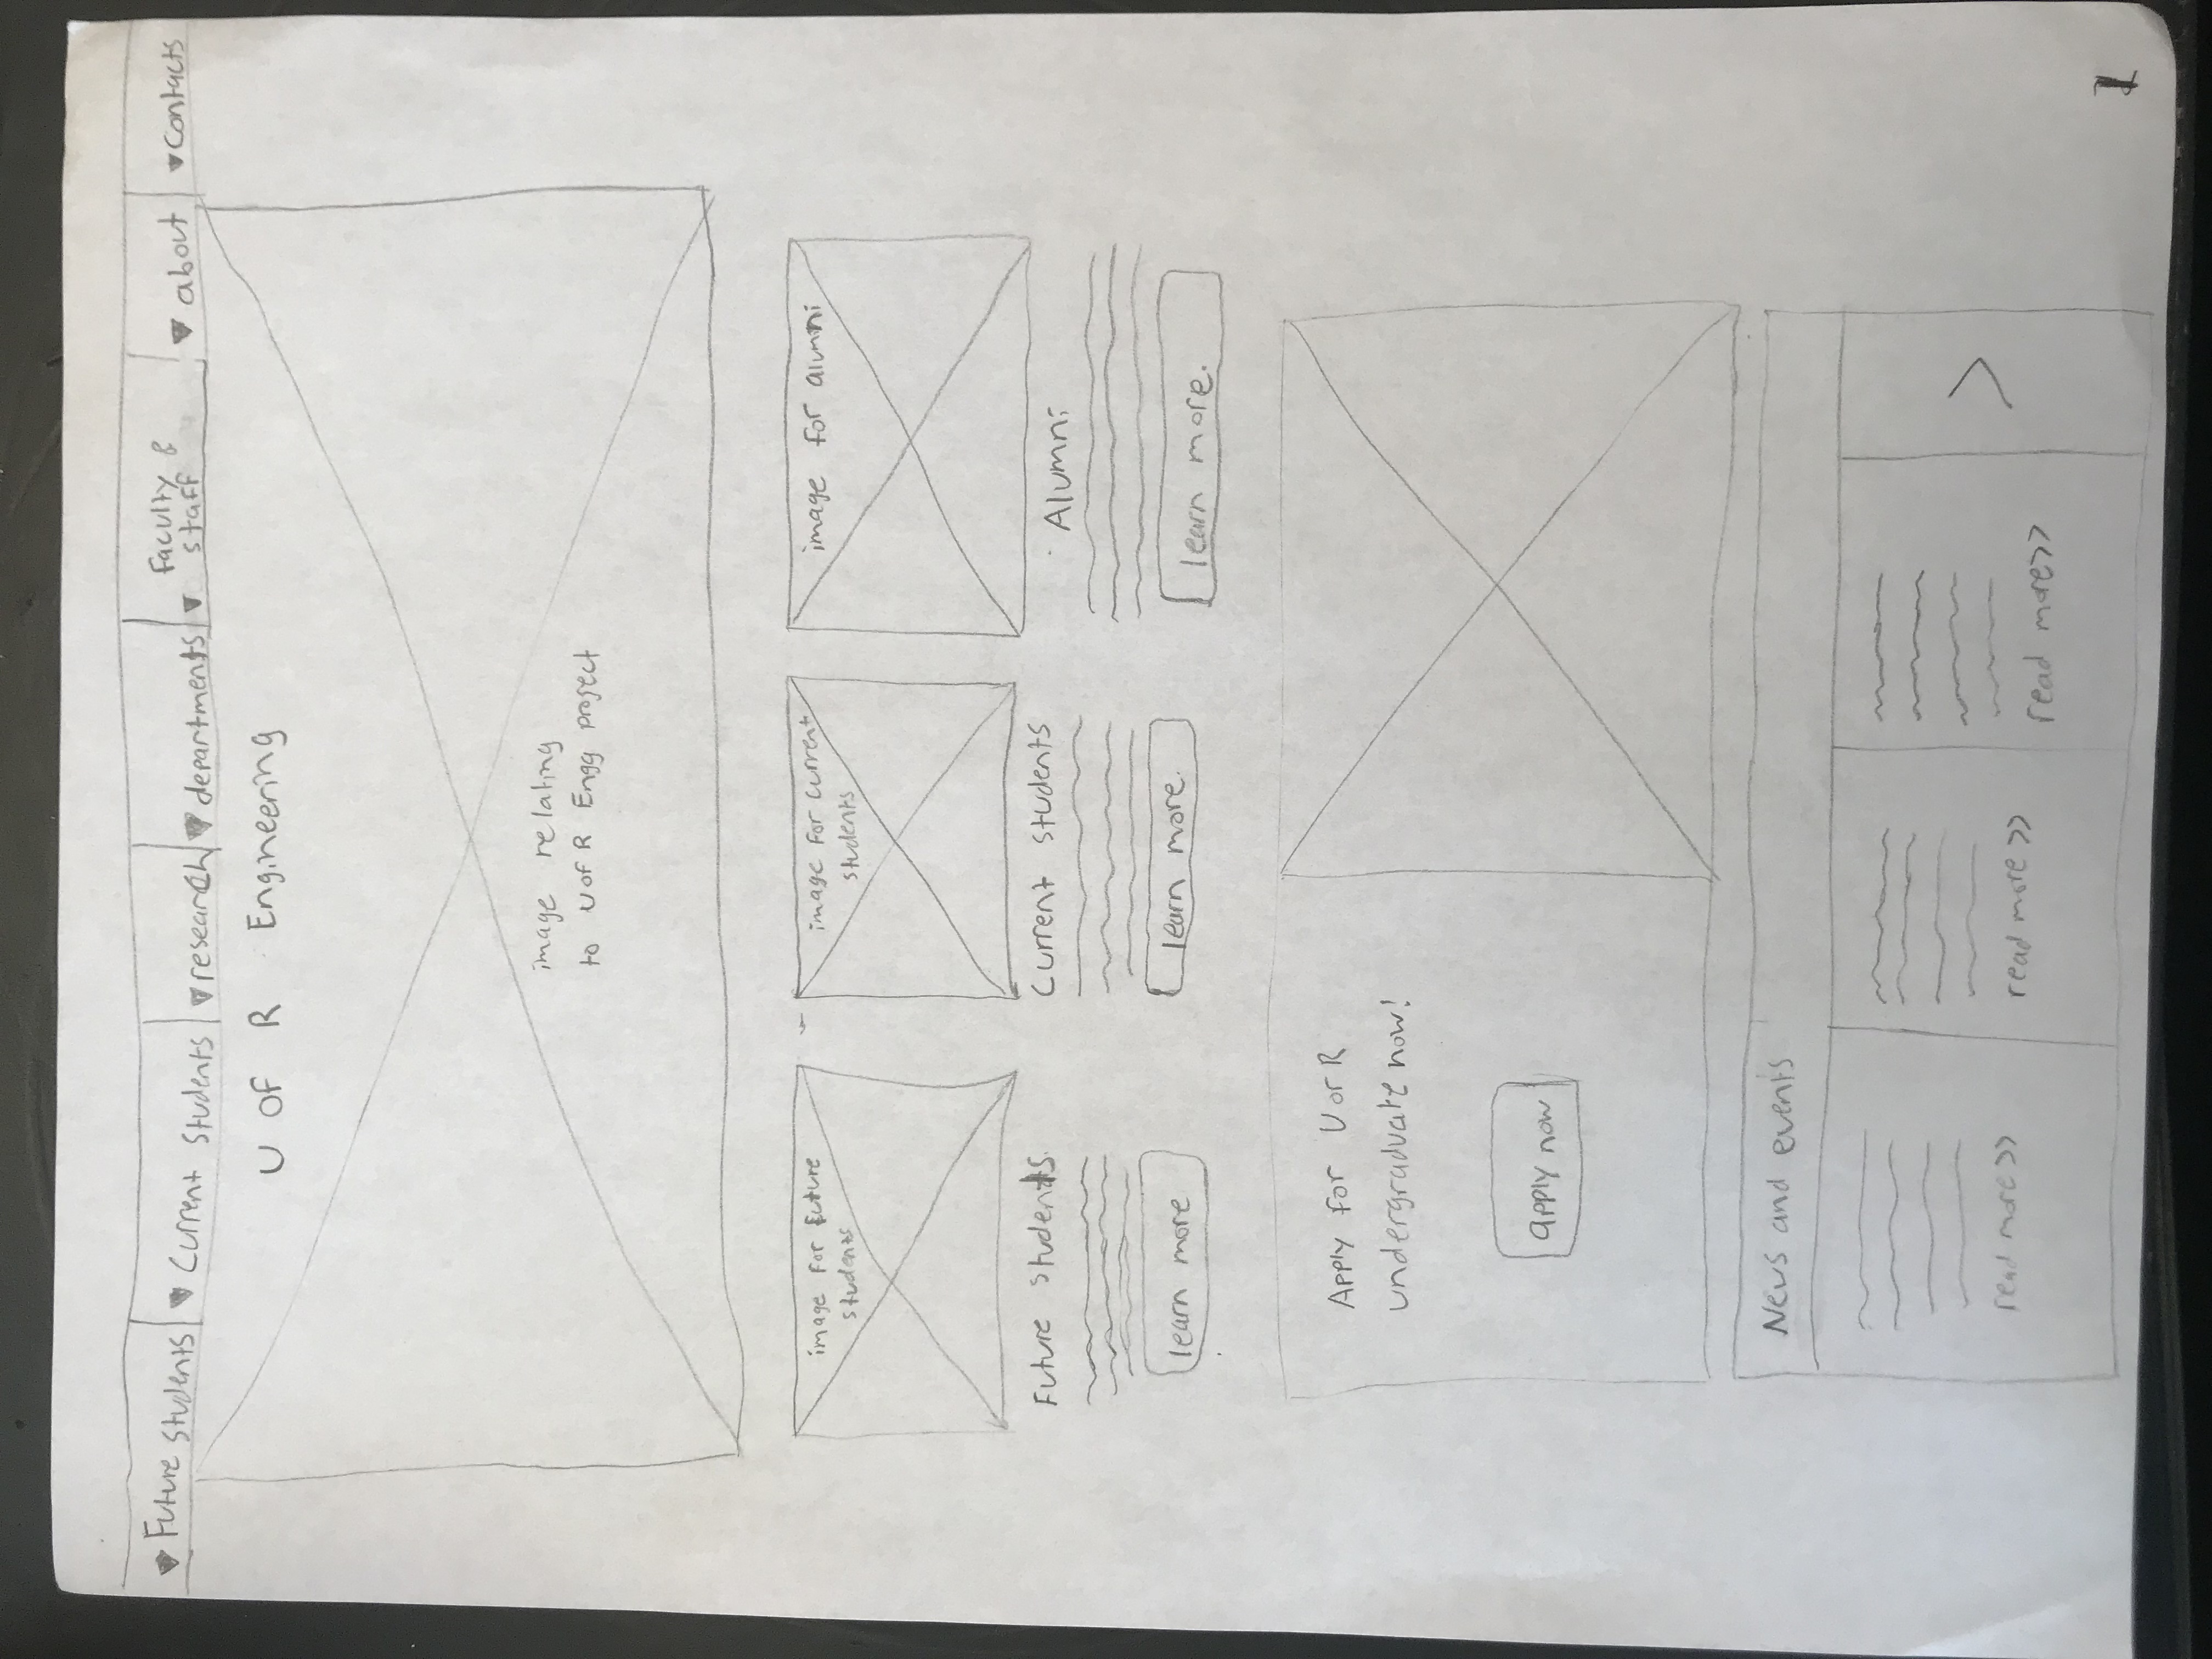 ▼ Future Students ▼ Current Students ▼ research ▼ departments ▼ Faculty & staff ▼ about ▼ contacts
U OF R Engineering
image relating
to U of R Engg project
image for future
students
image for current
students
image for alumni
Future students.
Current students
Alumni
learn more
learn more.
learn more.
Apply for U of R
undergraduate now!
apply now
News and events
read more >>
read more >>
read more>>
>
1